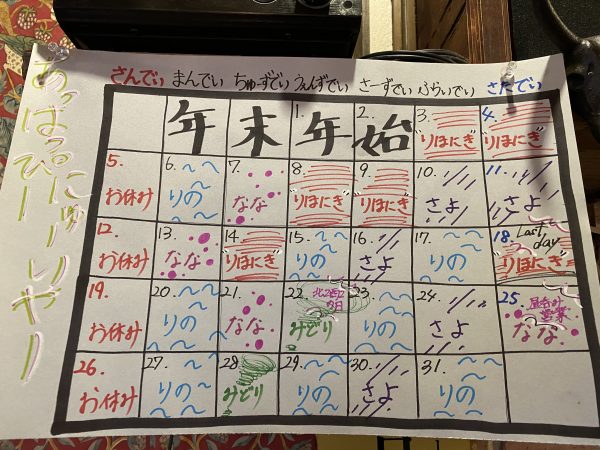 あっはっぴーにゅーいやー
さんでい まんでい ちゅーずでい うぇんずでい さーずでい ふらいでい さたでい
年 末 1. 年 2. 始 3. りほにぎ 4. りほにぎ
5. お休み 6. りの 7. なな 8. りほにぎ 9. りほにぎ 10. さよ 11. さよ
12. お休み 13. なな 14. りほにぎ 15. りの 16. さよ 17. りの 18. Last day りほにぎ
19. お休み 20. りの 21. なな 22. みどり 23. りの 24. さよ 25. 営業 なな
26. お休み 27. りの 28. みどり 29. りの 30. さよ 31. りの